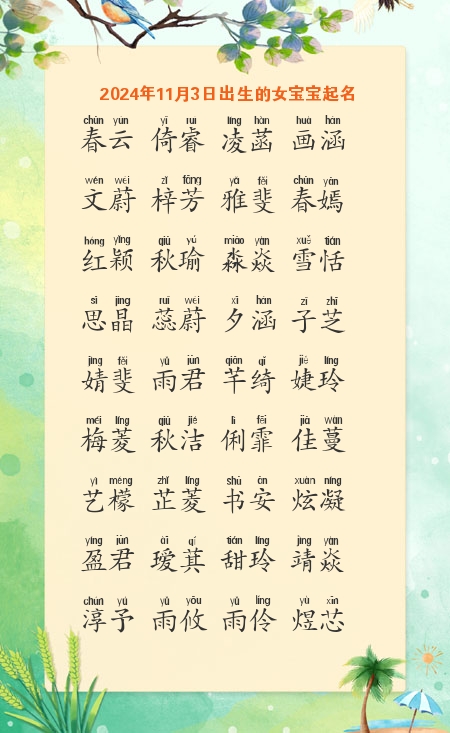 2024年11月3日出生的女宝宝起名
chūn yún yǐ ruì líng hàn huà hán
春云 倚睿 凌菡 画涵
wén wèi zǐ fāng yǎ fěi chūn yān
文蔚 梓芳 雅斐 春嫣
hóng yǐng qiū yú miǎo yàn xuě tián
红颖 秋瑜 淼焱 雪恬
sī jīng ruǐ wèi xī hán zǐ zhī
思晶 蕊蔚 夕涵 子芝
jìng fěi yǔ jūn qiān qǐ jié líng
婧斐 雨君 芊绮 婕玲
méi líng qiū jié lì fēi jiā màn
梅菱 秋洁 俐霏 佳蔓
yì méng zhǐ líng shū ān xuàn níng
艺檬 芷菱 书安 炫凝
yíng jūn ài qí tián líng jìng yàn
盈君 瑷萁 甜玲 靖焱
chún yú yǔ yōu yǔ líng yù xīn
淳予 雨攸 雨伶 煜芯